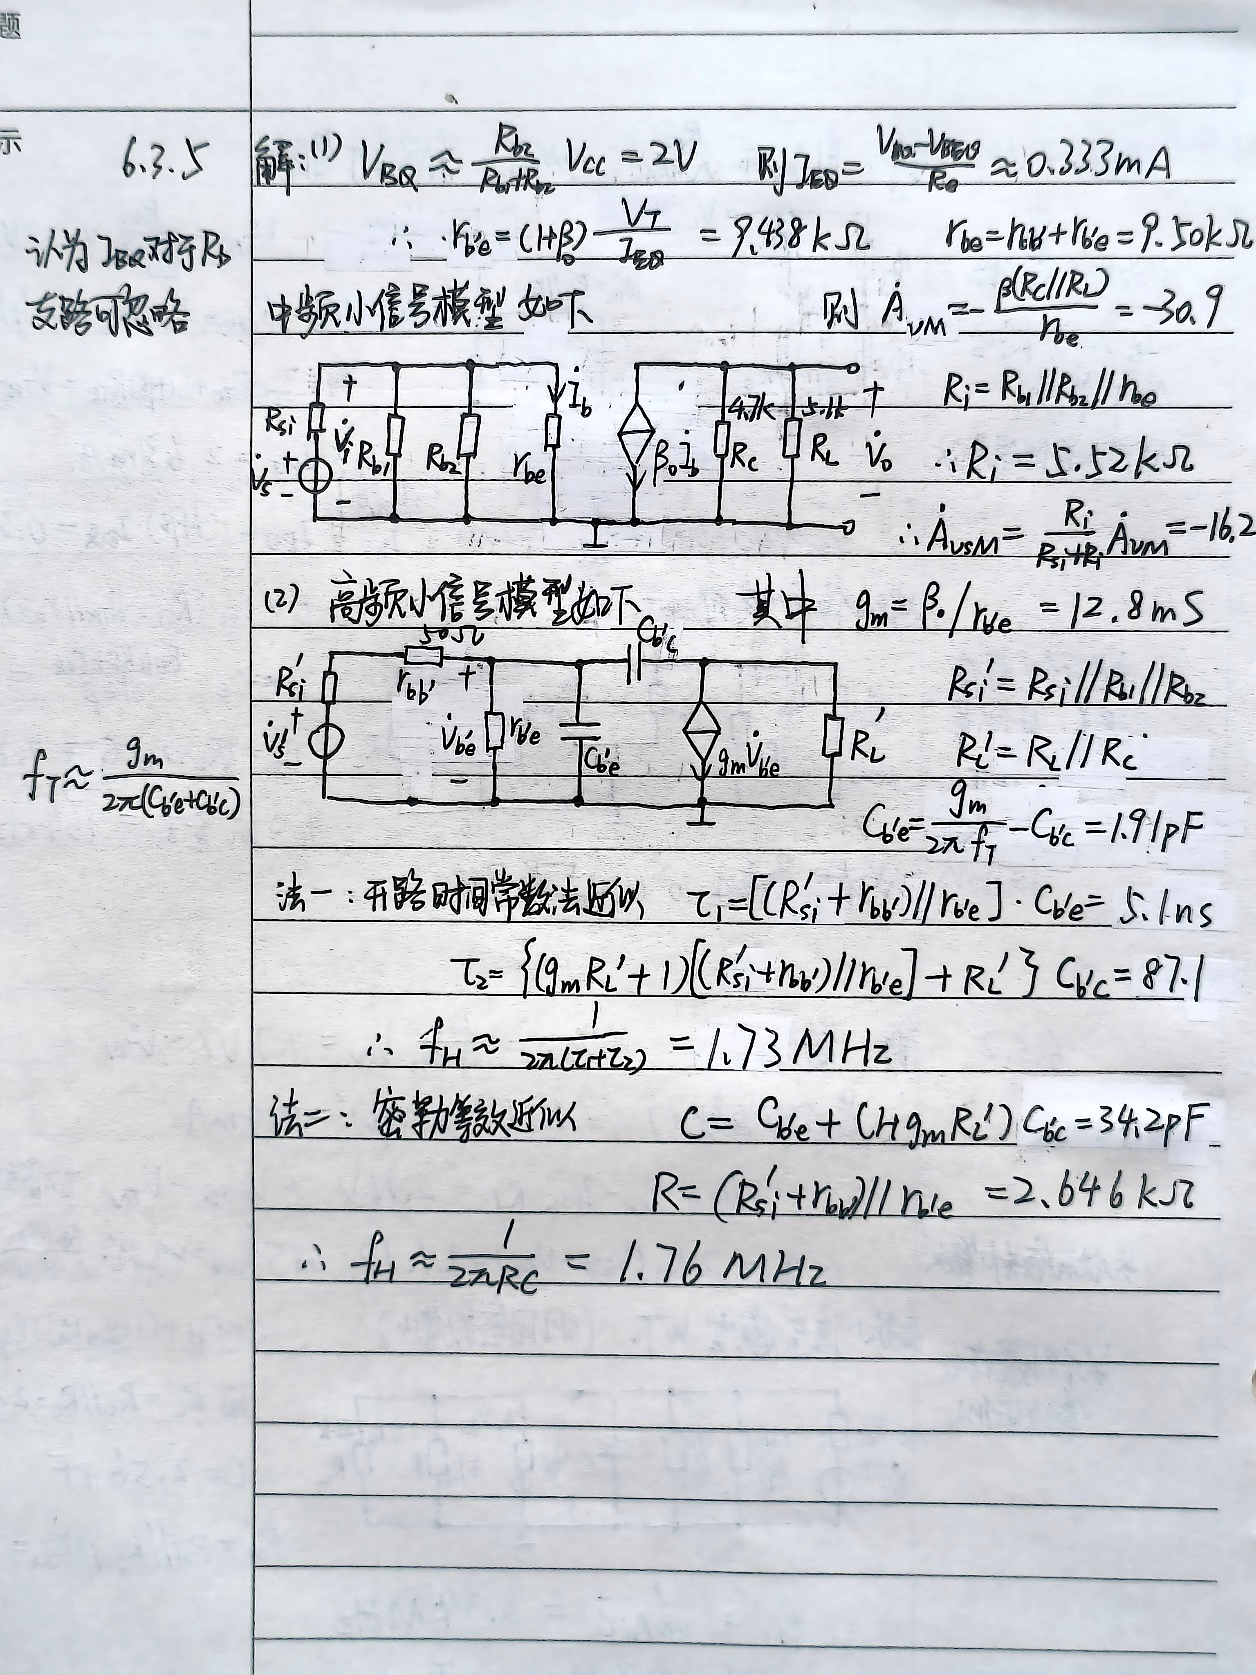 题
示
6.3.5
解:(1) V_BQ ≈ R_b2/(R_b1+R_b2) V_CC = 2V 则 I_EQ = (V_BQ-V_BEQ)/R_e ≈ 0.333mA
认为 I_BQ 对于 R_b
支路可忽略
∴ r_b'e = (1+β_0) V_T/I_EQ = 9.438kΩ r_be = r_bb' + r_b'e = 9.50kΩ
中频小信号模型如下 则 Ȧ_VM = - β(R_C//R_L)/r_be = -30.9
R_si + V̇_i - V̇_s + - R_b1 R_b2 r_be İ_b β_0 İ_b 4.7k R_C 5.1k R_L + V̇_o -
R_i = R_b1//R_b2//r_be
∴ R_i = 5.52kΩ
∴ Ȧ_VSM = R_i/(R_si+R_i) Ȧ_VM = -16.2
(2) 高频小信号模型如下 其中 g_m = β_0/r_b'e = 12.8mS
R_si' V̇_s' + - 50Ω r_bb' + V̇_b'e - r_b'e C_b'e C_b'c g_m V̇_b'e R_L'
R_si' = R_si//R_b1//R_b2
R_L' = R_L//R_C
f_T ≈ g_m/(2π(C_b'e+C_b'c))
C_b'e = g_m/(2πf_T) - C_b'c = 1.91pF
法一:开路时间常数法近似 τ_1 = [(R_si' + r_bb')//r_b'e]·C_b'e = 5.1ns
τ_2 = {(g_m R_L' + 1)[(R_si' + r_bb')//r_b'e] + R_L'} C_b'c = 87.1
∴ f_H ≈ 1/(2π(τ_1+τ_2)) = 1.73MHz
法二:密勒等效近似 C = C_b'e + (1+g_m R_L') C_b'c = 34.2pF
R = (R_si' + r_bb')//r_b'e = 2.646kΩ
∴ f_H ≈ 1/(2πRC) = 1.76MHz